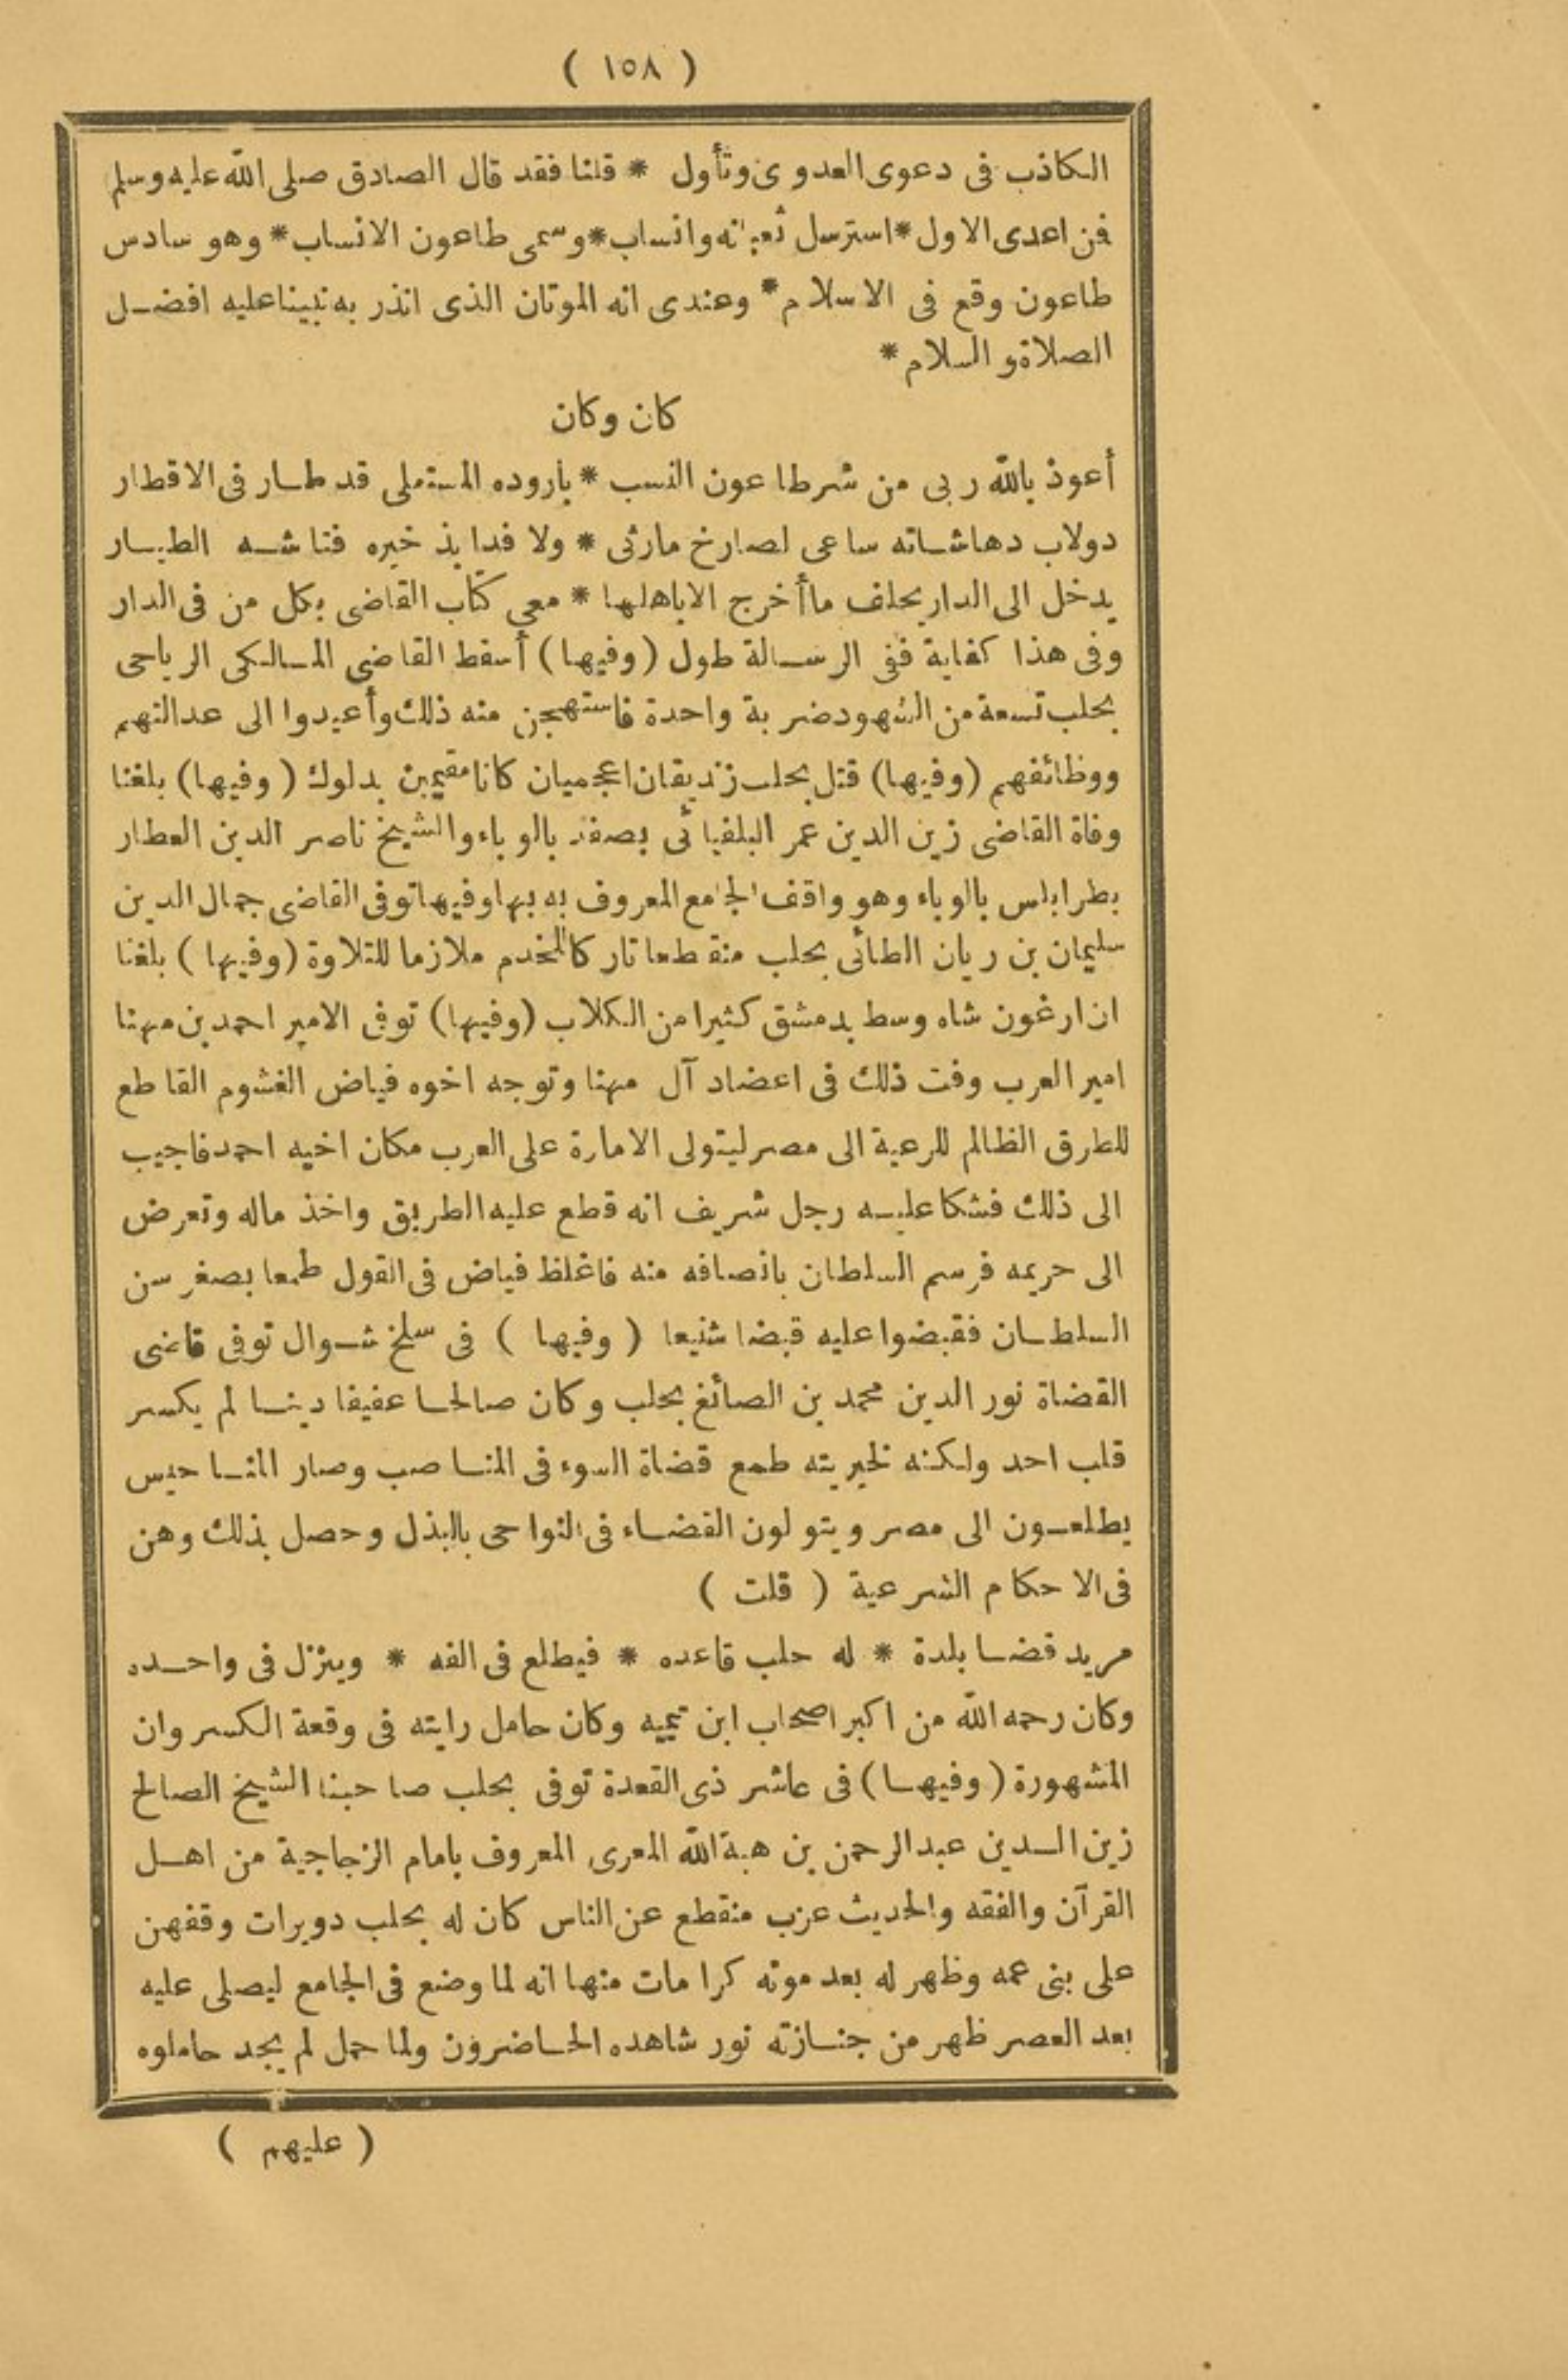 ( ١٥٨ )
الكاذب فى دعوى العدوى وتأول * قلنا فقد قال الصادق صلى الله عليه وسلم
فن اعدى الاول * استرسل ثعبانه وانساب * وسمى طاعون الانساب * وهو سادس
طاعون وقع فى الاسلام * وعندى انه الموتان الذى انذر به نبينا عليه افضل
الصلاة والسلام *
كان وكان
أعوذ بالله ربى من شر طاعون النسب * باروده المستعلى قد طار فى الاقطار
دولاب دهاشاته ساعى لصارخ مارثى * ولا فدا بذخيره فتاشه الطيار
يدخل الى الدار يحلف ما أخرج الا باهلها * معى كتاب القاضى بكل من فى الدار
وفى هذا كفاية ففى الرسالة طول (وفيها) أسقط القاضى المالكى الرياحى
بحلب تسعة من الشهود ضربة واحدة فاستهجن منه ذلك وأعيدوا الى عدالتهم
ووظائفهم (وفيها) قتل بحلب زنديقان اعجميان كانا مقيمين بدلوك (وفيها) بلغنا
وفاة القاضى زين الدين عمر البلفيائى بصفد بالوباء والشيخ ناصر الدين العطار
بطرابلس بالوباء وهو واقف الجامع المعروف به بها وفيها توفى القاضى جمال الدين
سليمان بن ريان الطائى بحلب منقطعا تاركا للخدم ملازما للتلاوة (وفيها) بلغنا
ان ارغون شاه وسط بدمشق كثيرا من الكلاب (وفيها) توفى الامير احمد بن مهنا
امير العرب وفت ذلك فى اعضاد آل مهنا وتوجه اخوه فياض الغشوم القاطع
للطرق الظالم للرعية الى مصر ليتولى الامارة على العرب مكان اخيه احمد فاجيب
الى ذلك فشكا عليه رجل شريف انه قطع عليه الطريق واخذ ماله وتعرض
الى حريمه فرسم السلطان بانصافه منه فاغلظ فياض فى القول طمعا بصغر سن
السلطان فقبضوا عليه قبضا شنيعا (وفيها) فى سلخ شوال توفى قاضى
القضاة نور الدين محمد بن الصائغ بحلب وكان صالحا عفيفا دينا لم يكسر
قلب احد ولكنه لخيريته طمع قضاة السوء فى المناصب وصار المناحيس
يطلعون الى مصر ويتولون القضاء فى النواحى بالبذل وحصل بذلك وهن
فى الاحكام الشرعية (قلت)
مريد قضا بلدة * له حلب قاعده * فيطلع فى الفه * وينزل فى واحده
وكان رحمه الله من اكبر اصحاب ابن تيميه وكان حامل رايته فى وقعة الكسروان
المشهورة (وفيها) فى عاشر ذى القعدة توفى بحلب صاحبنا الشيخ الصالح
زين الدين عبد الرحمن بن هبة الله المعرى المعروف بامام الزجاجية من اهل
القرآن والفقه والحديث عزب منقطع عن الناس كان له بحلب دويرات وقفهن
على بنى عمه وظهر له بعد موته كرامات منها انه لما وضع فى الجامع ليصلى عليه
بعد العصر ظهر من جنازته نور شاهده الحاضرون ولما حمل لم يجد حاملوه
( عليهم )